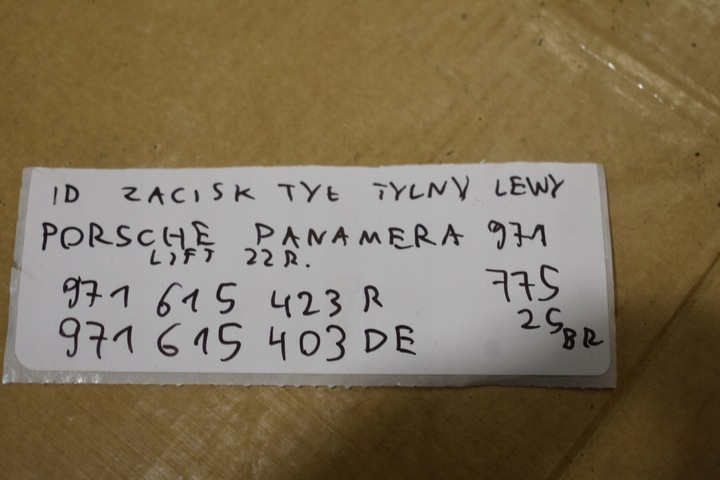 ID ZACISK TYŁ TYLNY LEWY
PORSCHE PANAMERA 971
LIFT 22R.
971 615 423 R 775
971 615 403 DE 25BR